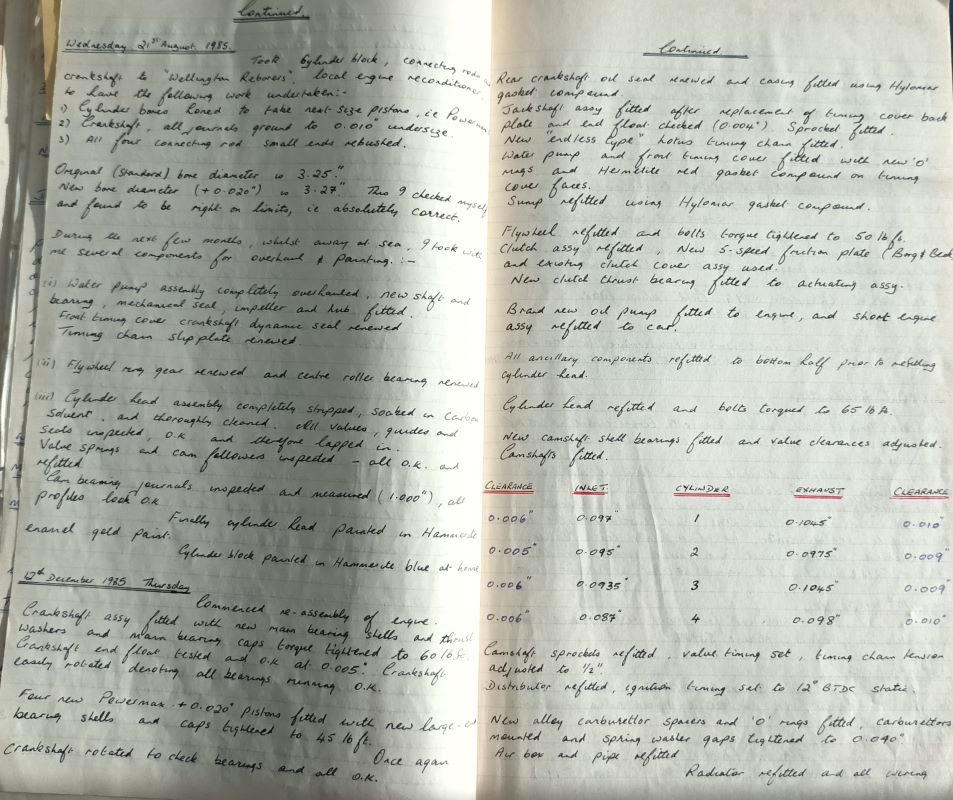 Continued.
Wednesday 21st August, 1985.
Took Cylinder block, connecting rods
crankshaft to "Wellington Reborers", local engine reconditioner,
to have the following work undertaken:-
1) Cylinder bores honed to take next size pistons, i.e Powermax
2) Crankshaft, all journals ground to 0.010" undersize.
3) All four connecting rod small ends rebushed.
Original (standard) bore diameter is 3.25".
New bore diameter (+0.020") is 3.27" This I checked myself
and found to be right on limits, i.e absolutely correct.
During the next few months, whilst away at sea, I took with
me several components for overhaul & painting. :-
(i) Water pump assembly completely overhauled, new shaft and
bearing, mechanical seal, impeller and hub fitted.
Front timing cover crankshaft dynamic seal renewed
Timing chain slipplate renewed.
(ii) Flywheel ring gear renewed and centre roller bearing renewed
(iii) Cylinder head assembly completely stripped, soaked in Carbon
solvent, and thoroughly cleaned. All valves, guides and
seats inspected, O.K and therefore lapped in.
Valve springs and cam followers inspected - all O.K. and
refitted
Cam bearing journals inspected and measured (1.000"), all
profiles look O.K
Finally cylinder head painted in Hammerite
enamel gold paint.
Cylinder block painted in Hammerite blue at home
December 1985 Thursday
Commenced re-assembly of engine.
Crankshaft assy fitted with new main bearing shells and thrust
washers and main bearing caps torque tightened to 60 lb ft.
Crankshaft end float tested and O.K at 0.005". Crankshaft
easily rotated denoting all bearings running O.K.
Four new Powermax +0.020" pistons fitted with new large-end
bearing shells and caps tightened to 45 lb ft.
Once again
Crankshaft rotated to check bearings and all O.K.
Continued.
Rear crankshaft oil seal renewed and casing fitted using Hylomar
gasket compound.
Jackshaft assy fitted after replacement of timing cover back
plate and end float checked (0.004") Sprocket fitted.
New "endless type" Lotus timing chain fitted.
Water pump and front timing cover fitted with new 'O'
rings and Hermetite red gasket compound on timing
cover faces.
Sump refitted using Hylomar gasket compound.
Flywheel refitted and bolts torque tightened to 50 lb ft.
Clutch assy refitted, New 5-speed friction plate (Borg & Beck
and existing clutch cover assy used.
New clutch thrust bearing fitted to actuating assy.
Brand new oil pump fitted to engine, and short engine
assy refitted to car.
All ancillary components refitted to bottom half prior to refitting
cylinder head.
Cylinder head refitted and bolts torqued to 65 lb ft.
New camshaft shell bearings fitted and valve clearances adjusted.
Camshafts fitted.
CLEARANCE INLET CYLINDER EXHAUST CLEARANCE
0.006" 0.097" 1 0.1045" 0.010"
0.005" 0.095" 2 0.0975" 0.009"
0.006" 0.0935" 3 0.1045" 0.009"
0.006" 0.087" 4 0.098" 0.010"
Camshaft sprockets refitted, valve timing set, timing chain tension
adjusted to 1/2".
Distributor refitted, ignition timing set to 12° BTDC static.
New alloy carburettor spacers and 'O' rings fitted, carburettors
mounted and spring washer gaps tightened to 0.040".
Air box and pipe refitted
Radiator refitted and all wiring